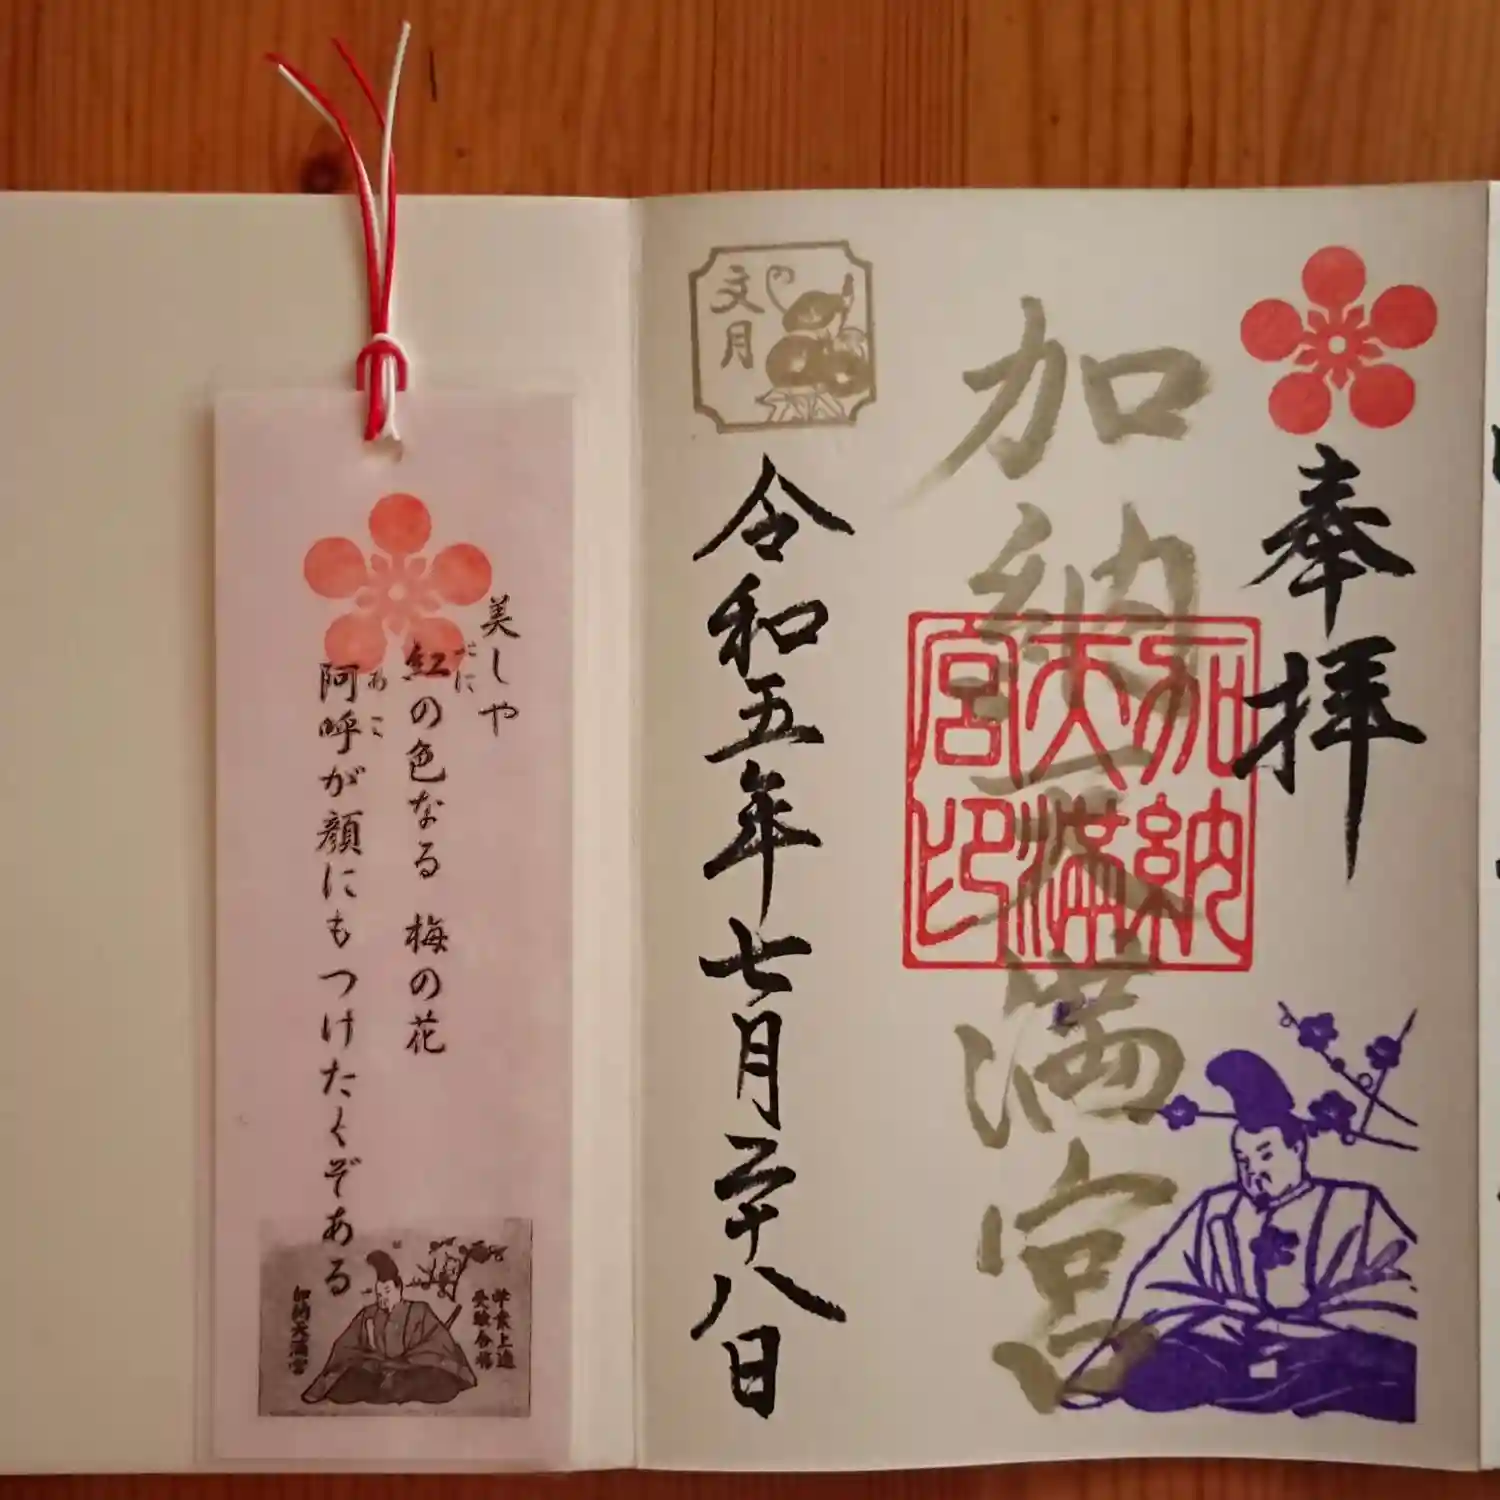 奉拝
加納天満宮
加納天満宮印
文月
令和五年七月二十八日
美しや
紅の色なる 梅の花
べに
阿呼が顔にもつけたくぞある
あこ
学業上達
受験合格
加納天満宮